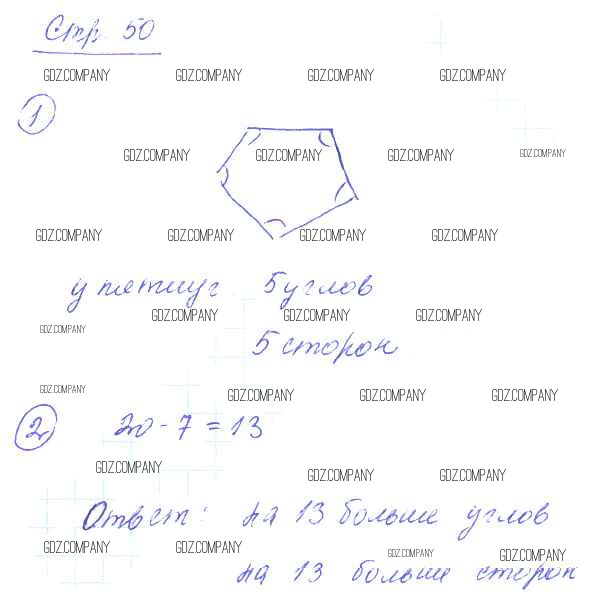 Стр. 50
GDZ.COMPANY GDZ.COMPANY GDZ.COMPANY GDZ.COMPANY
1
GDZ.COMPANY GDZ.COMPANY GDZ.COMPANY GDZ.COMPANY
GDZ.COMPANY GDZ.COMPANY GDZ.COMPANY GDZ.COMPANY
у пятиуг. 5 углов
GDZ.COMPANY GDZ.COMPANY GDZ.COMPANY
GDZ.COMPANY
5 сторон
GDZ.COMPANY GDZ.COMPANY GDZ.COMPANY GDZ.COMPANY
2 20 - 7 = 13
GDZ.COMPANY GDZ.COMPANY GDZ.COMPANY
Ответ: на 13 больше углов
GDZ.COMPANY GDZ.COMPANY GDZ.COMPANY GDZ.COMPANY
на 13 больше сторон